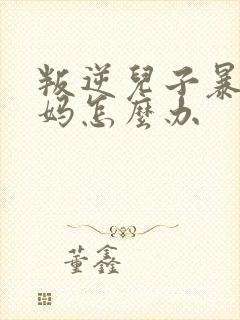 叛逆兒子暴
妈怎麼办
董鑫